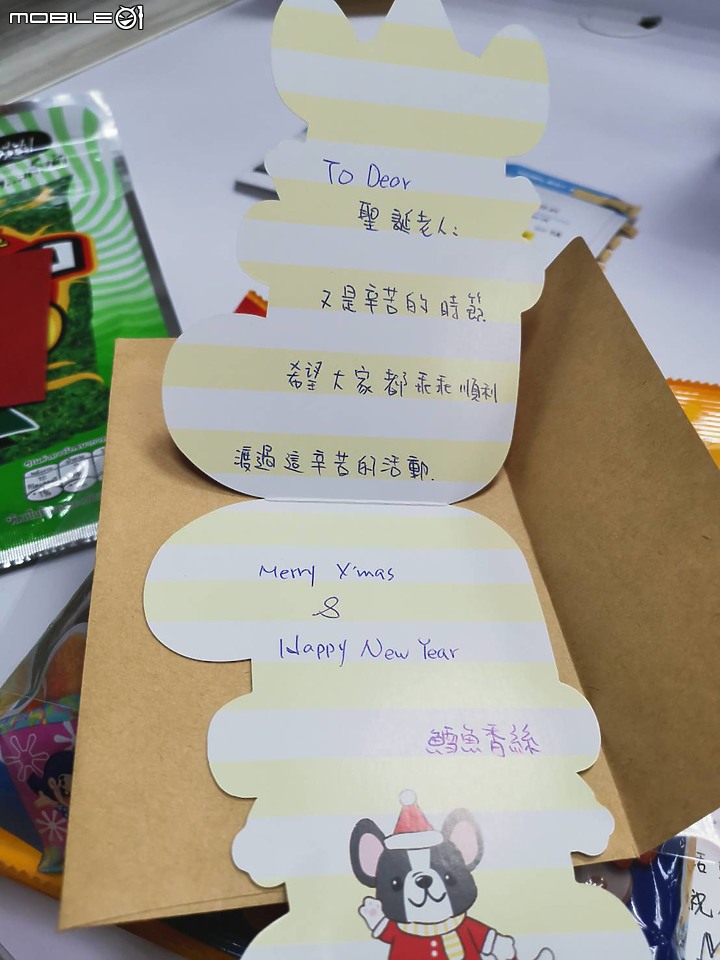 MOBILE01
To Dear
聖誕老人:
又是辛苦的時節
希望大家都乖乖順利
渡過這辛苦的活動.
Merry X'mas
&
Happy New Year
鱈魚香絲
祝